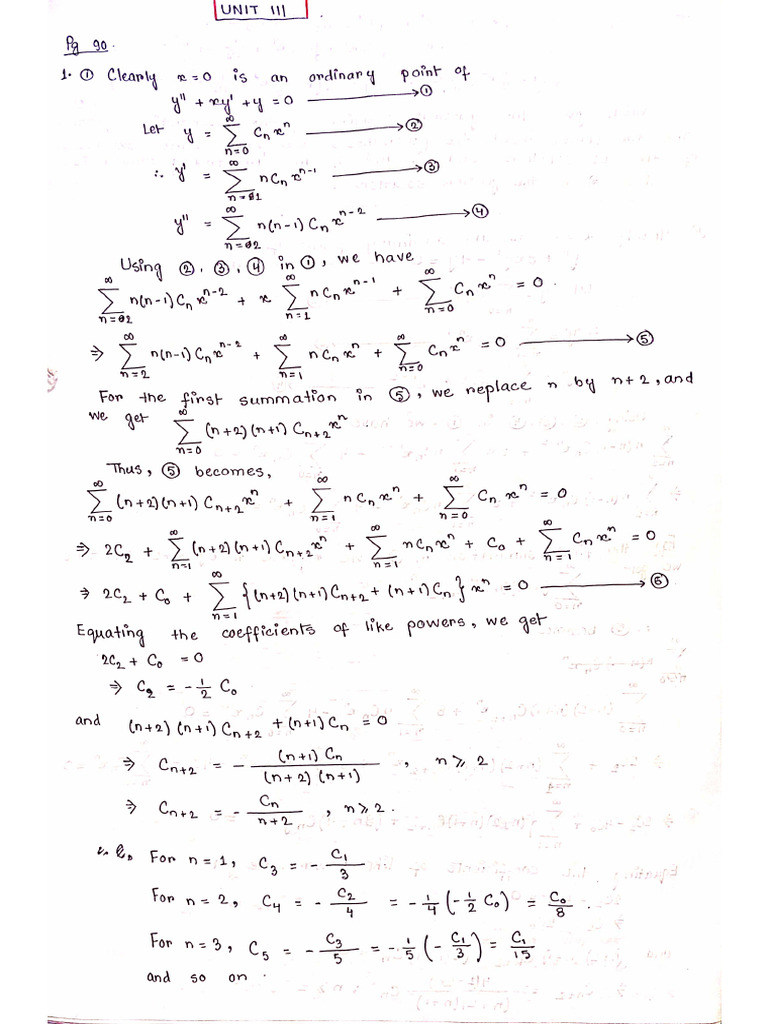 UNIT III
Pg 90.
1. ① Clearly x=0 is an ordinary point of
y'' + xy' + y = 0 → ①
Let y = ∑_{n=0}^{∞} Cₙ xⁿ → ②
∴ y' = ∑_{n=1}^{∞} n Cₙ x^{n-1} → ③
y'' = ∑_{n=2}^{∞} n(n-1) Cₙ x^{n-2} → ④
Using ②, ③, ④ in ①, we have
∑_{n=2}^{∞} n(n-1) Cₙ x^{n-2} + x ∑_{n=1}^{∞} n Cₙ x^{n-1} + ∑_{n=0}^{∞} Cₙ xⁿ = 0.
⇒ ∑_{n=2}^{∞} n(n-1) Cₙ x^{n-2} + ∑_{n=1}^{∞} n Cₙ xⁿ + ∑_{n=0}^{∞} Cₙ xⁿ = 0 → ⑤
For the first summation in ⑤, we replace n by n+2, and
we get ∑_{n=0}^{∞} (n+2)(n+1) C_{n+2} xⁿ
Thus, ⑤ becomes,
∑_{n=0}^{∞} (n+2)(n+1) C_{n+2} xⁿ + ∑_{n=1}^{∞} n Cₙ xⁿ + ∑_{n=0}^{∞} Cₙ xⁿ = 0
⇒ 2C₂ + ∑_{n=1}^{∞} (n+2)(n+1) C_{n+2} xⁿ + ∑_{n=1}^{∞} n Cₙ xⁿ + C₀ + ∑_{n=1}^{∞} Cₙ xⁿ = 0
⇒ 2C₂ + C₀ + ∑_{n=1}^{∞} {(n+2)(n+1) C_{n+2} + (n+1) Cₙ} xⁿ = 0 → ⑥
Equating the coefficients of like powers, we get
2C₂ + C₀ = 0
⇒ C₂ = -1/2 C₀
and (n+2)(n+1) C_{n+2} + (n+1) Cₙ = 0
⇒ C_{n+2} = - (n+1) Cₙ / (n+2)(n+1), n ⩾ 2
⇒ C_{n+2} = - Cₙ / n+2, n ⩾ 2.
For n = 1, C₃ = - C₁/3
For n = 2, C₄ = - C₂/4 = -1/4 (-1/2 C₀) = C₀/8.
For n = 3, C₅ = - C₃/5 = -1/5 (- C₁/3) = C₁/15
and so on.